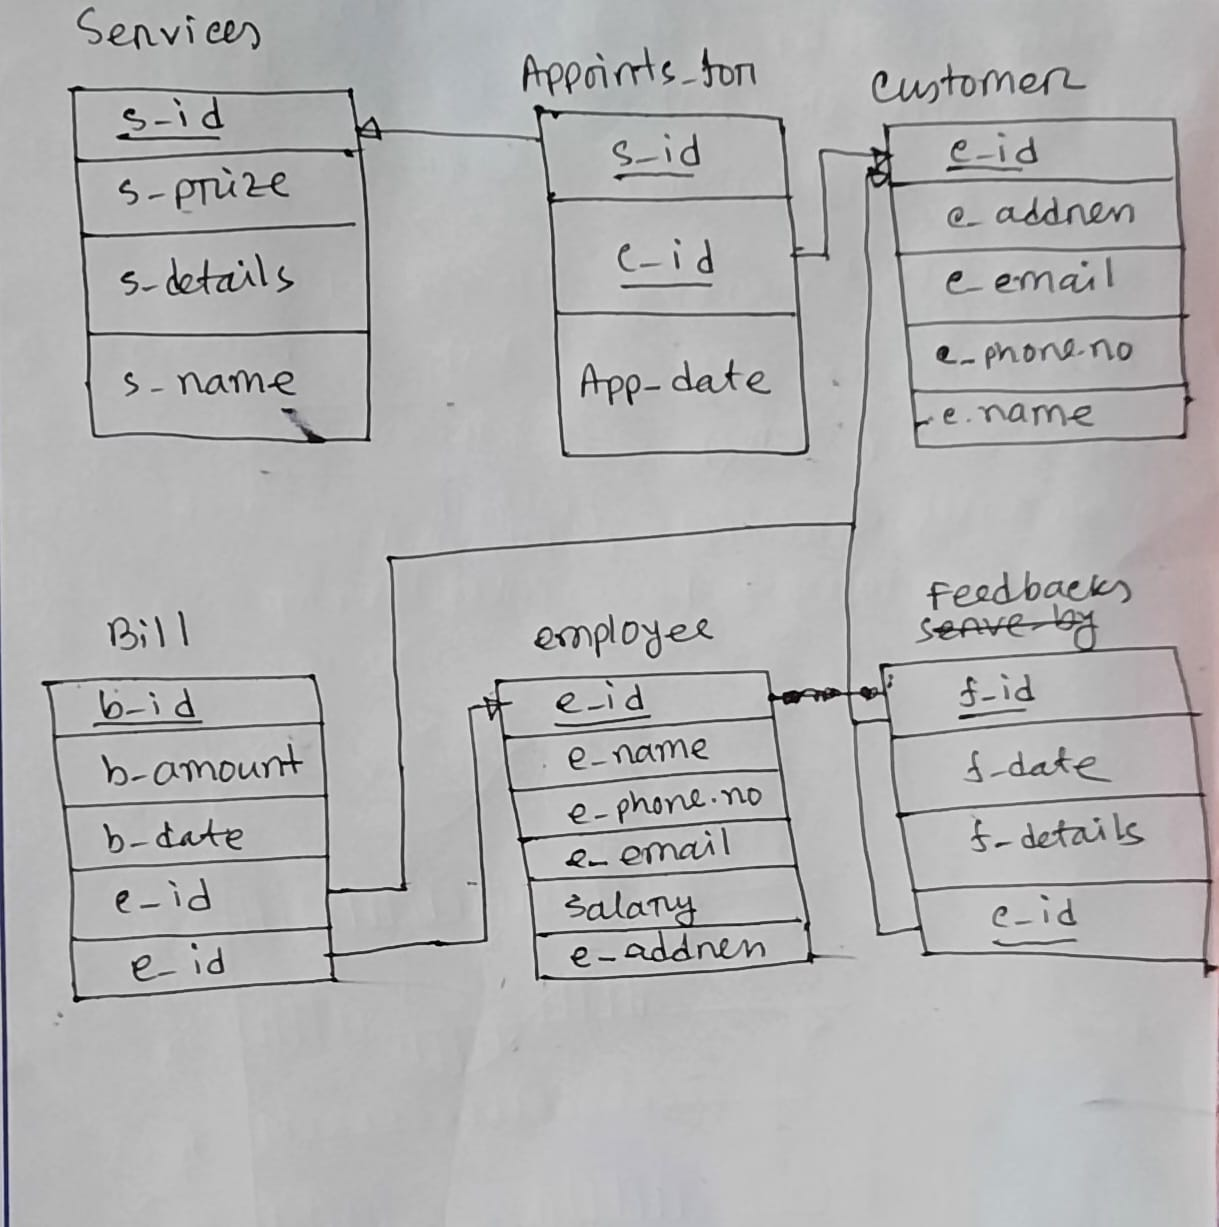 Services
s-id
s-prize
s-details
s-name
Appoints_for
s-id
c-id
App-date
Customer
c-id
c-address
c-email
c-phone.no
c.name
Bill
b-id
b-amount
b-date
c-id
e-id
employee
e-id
e-name
e-phone.no
e-email
salary
e-address
Feedbacks
serve-by
f-id
f-date
f-details
c-id